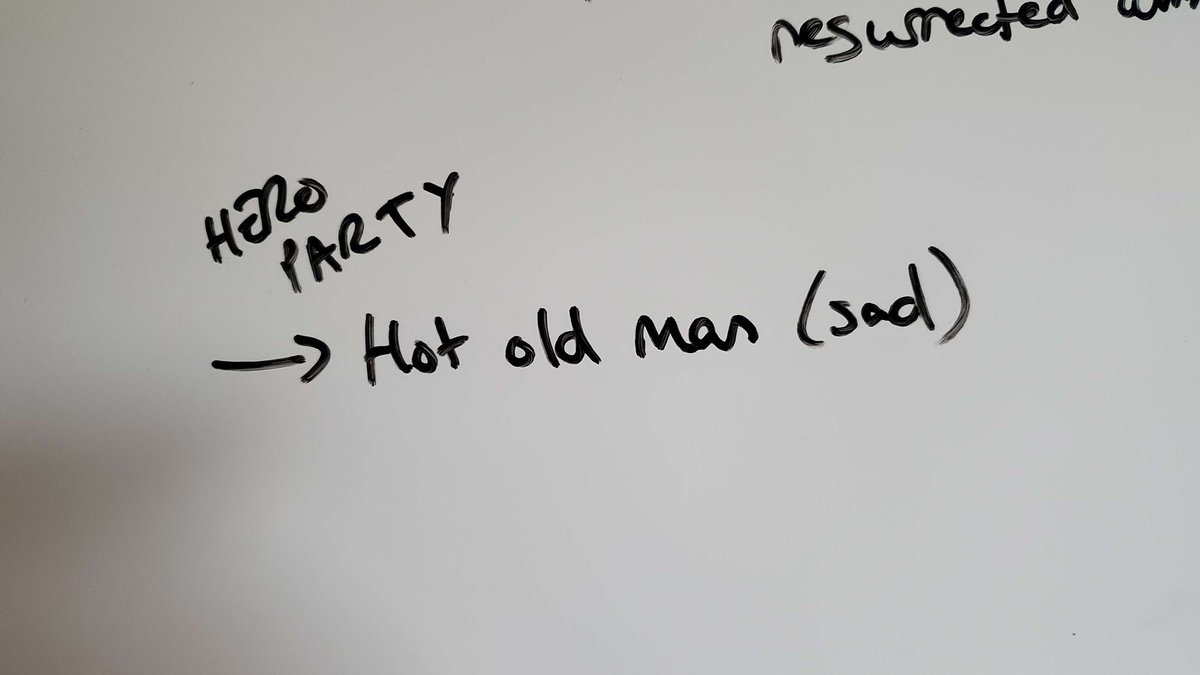 resurrected
HERO
PARTY
→ Hot old man (sad)